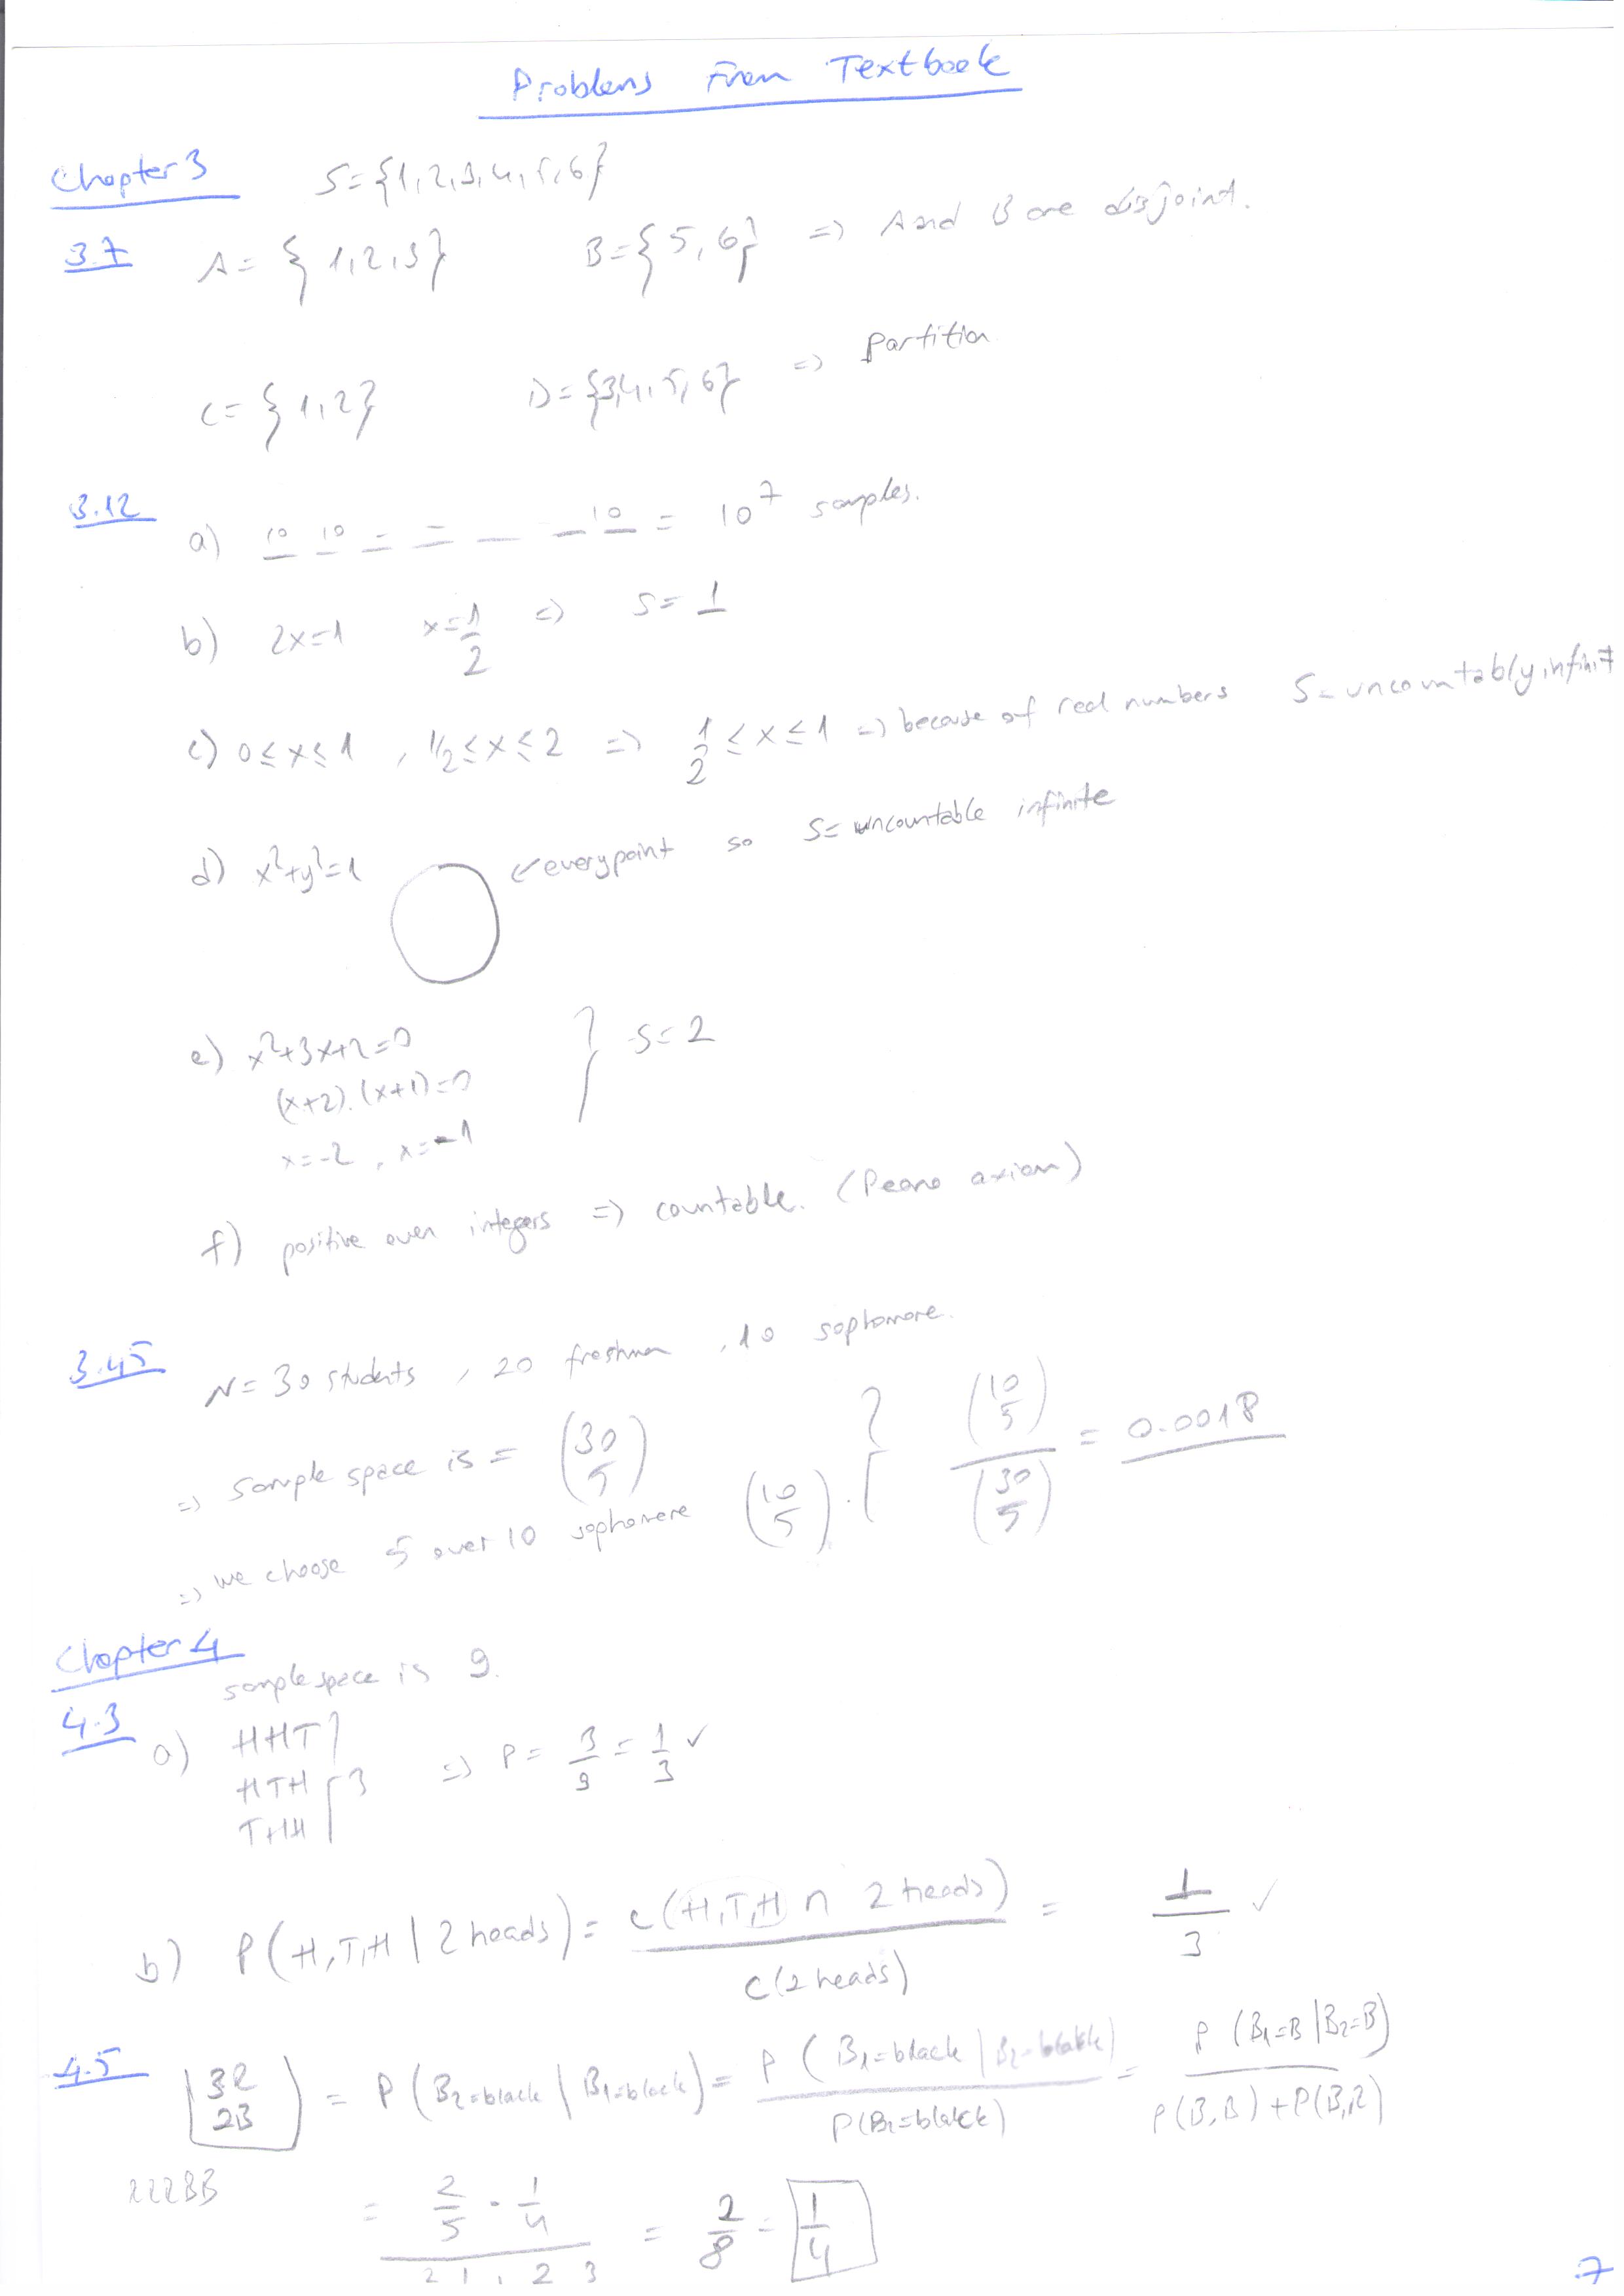 Problems From Textbook
Chapter 3 S={1,2,3,4,5,6}
3.7 A={1,2,3} B={5,6} => A and B are disjoint.
C={1,2} D={3,4,5,6} => Partition
3.12
a) 10 10 _ _ _ _ 10 = 10^7 samples.
b) 2x=1 x=1/2 => S=1
c) 0≤x≤1 , 1/2≤x≤2 => 1/2≤x≤1 => because of real numbers S=uncountably infinit
d) x²+y²=1 ← every point so S=uncountable infinite
e) x²+3x+2=0 } S=2
(x+2).(x+1)=0
x=-2, x=-1
f) positive even integers => countable. (Peano axiom)
3.45 N=30 students , 20 freshman , 10 sophomore.
=> sample space is = (30 5) } (10 5)/(30 5) = 0.0018
=> we choose 5 over 10 sophomore (10 5).
Chapter 4
sample space is 9.
4.3 a) HHT
HTH } 3 => P= 3/9 = 1/3 ✓
THH
b) P(H,T,H | 2 heads) = c(H,T,H ∩ 2 heads)/c(2 heads) = 1/3 ✓
4.5 3R 2B = P(B2=black | B1=black) = P(B1=black | B2=black)/P(B1=black) = P(B1=B | B2=B)/P(B,B)+P(B,R)
RRRBB
= 2/5 . 1/4 = 2/8 = 1/4
7